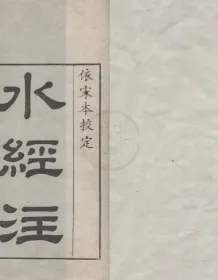 依宋本挍定
水經注